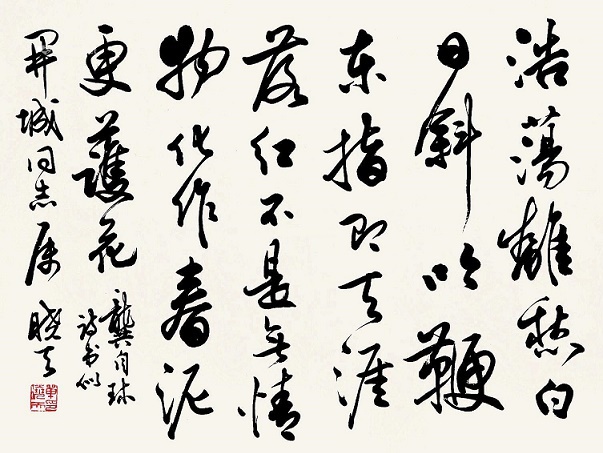 浩蕩離愁白
日斜吟鞭
东指即天涯
落红不是无情
物化作春泥
更護花
龔自珍
诗书似
開城同志属 晓天